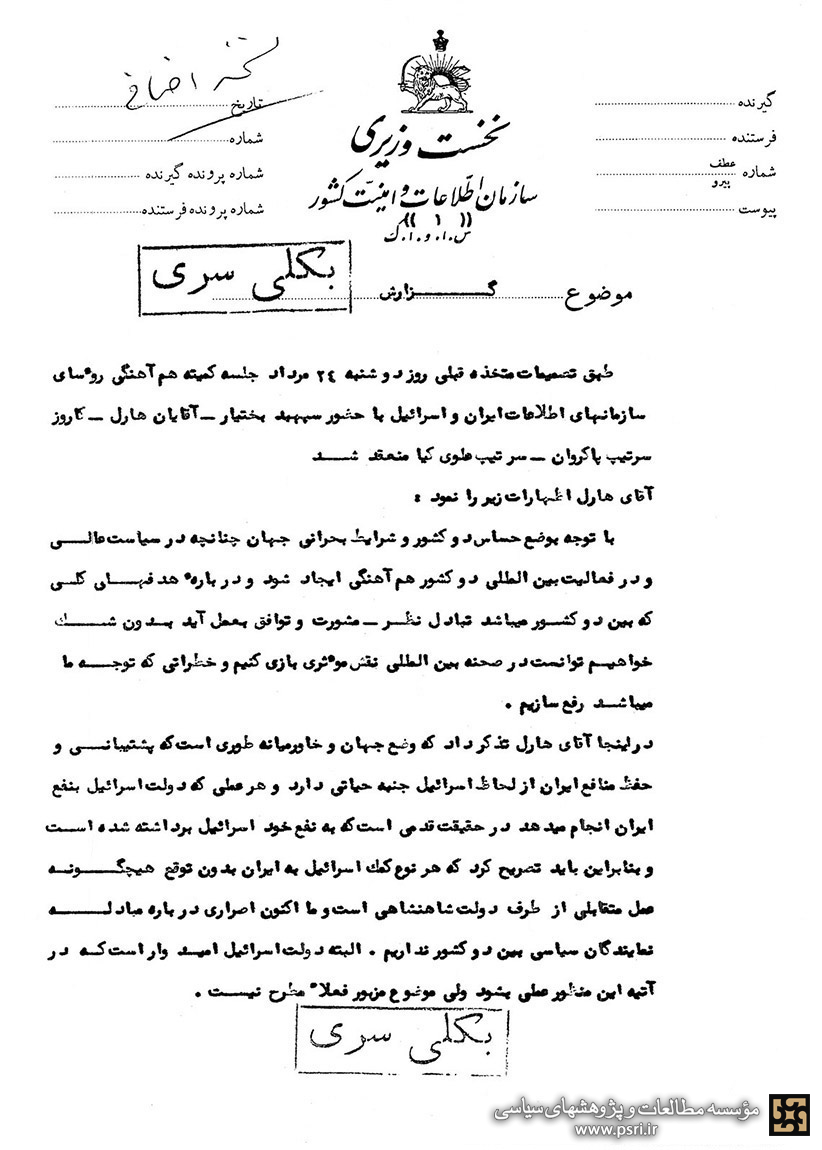 نسخه اضافی
گیرنده
فرستنده
شماره عطف پیرو
پیوست
نخست وزیری
سازمان اطلاعات و امنیت کشور
((۱))
س.ا.و.ا.ک
تاریخ
شماره
شماره پرونده گیرنده
شماره پرونده فرستنده
بکلی سری
موضوع گــــزارش
طبق تصمیمات متخذه قبلی روز دوشنبه ۲۴ مرداد جلسه کمیته هم آهنگی روٴسای
سازمانهای اطلاعات ایران و اسرائیل با حضور سپهبد بختیار ــ آقایان هارل ــ کاروز
سرتیپ پاکروان ــ سرتیپ علوی کیا منعقد شــد
آقای هارل اظهارات زیر را نمود :
با توجه بوضع حساس دو کشور و شرایط بحرانی جهان چنانچه در سیاست عالــی
و در فعالیت بین المللی دو کشور هم آهنگی ایجاد شود و در بارهٴ هدفهــای کلــی
که بین دو کشــور میباشد تبادل نظــر ــ مشورت و توافق بعمل آید بــدون شــك
خواهیــم توانست در صحنه بین المللی نقش موٴثری بازی کنیم و خطراتی که توجــه ما
میباشــد رفع سازیم .
در اینجا آقای هارل تذکر داد که وضع جهان و خاورمیانه طوری است که پشتیبانــی و
حفظ منافع ایران از لحاظ اسرائیل جنبه حیاتی دارد و هر عملی که دولت اسرائیل بنفع
ایران انجام میدهد در حقیقت قدمی است که به نفع خود اسرائیل برداشته شده اســت
و بنابراین باید تصریح کرد که هر نوع کمك اسرائیل به ایران بدون توقع هیچگــونــه
عمل متقابلی از طرف دولت شاهنشاهی است و ما اکنون اصراری در باره مبادلــه
نمایندگان سیاسی بین دو کشور نداریم . البته دولت اسرائیل امیــد وار است کــه در
آتیه این منظور عملی بشود ولی موضوع مزبور فعلاً مطرح نیســت .
بکلی سری
مؤسسه مطالعات و پژوهشهای سیاسی
www.psri.ir